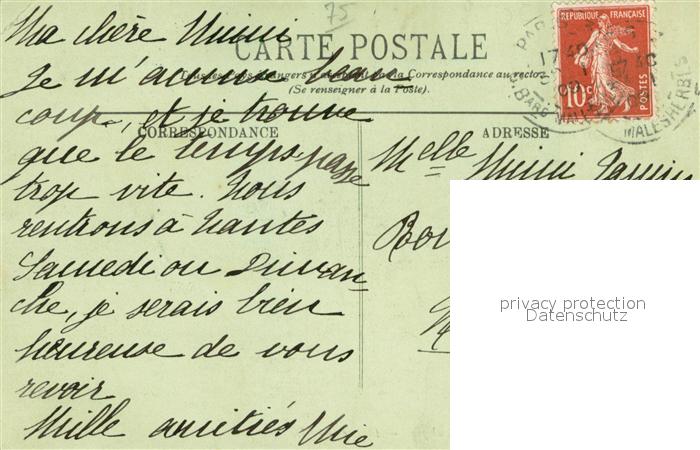 75
Ma chère Mimi
CARTE POSTALE
Je m'amuse beau
Tous les Pays étrangers n'acceptent pas la Correspondance au recto.
(Se renseigner à la Poste).
coup, et je trouve
CORRESPONDANCE
que le temps passe
trop vite. Nous
rentrons à Nantes
Samedi ou Diman
che, je serais bien
heureuse de vous
revoir
Mille amitiés
ADRESSE
Melle Mimi
REPUBLIQUE FRANÇAISE
10c
POSTES
PARIS
17 40
09
MALESHERBES
privacy protection
Datenschutz